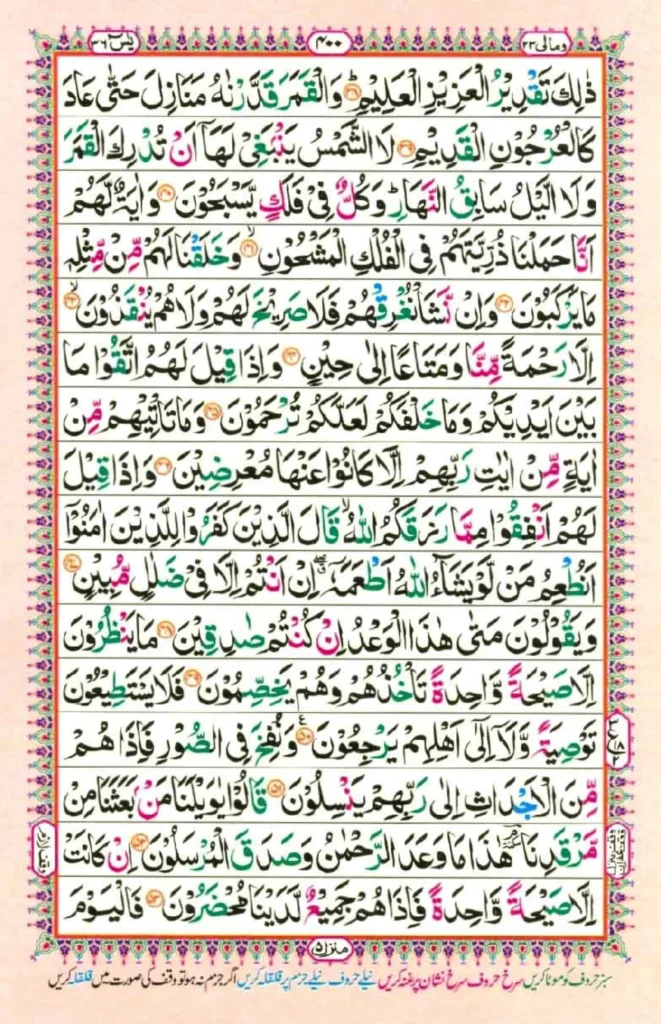 ومالی ۲۳ ۴۰۰ یٰسٓ ۳۶
ذٰلِكَ تَقْدِیْرُ الْعَزِیْزِ الْعَلِیْمِؕ۝۳۸ وَالْقَمَرَ قَدَّرْنٰهُ مَنَازِلَ حَتّٰى عَادَ
كَالْعُرْجُوْنِ الْقَدِیْمِ۝۳۹ لَا الشَّمْسُ یَنْۢبَغِیْ لَهَاۤ اَنْ تُدْرِكَ الْقَمَرَ
وَلَا الَّیْلُ سَابِقُ النَّهَارِؕ وَكُلٌّ فِیْ فَلَكٍ یَّسْبَحُوْنَ۝۴۰ وَاٰیَةٌ لَّهُمْ
اَنَّا حَمَلْنَا ذُرِّیَّتَهُمْ فِی الْفُلْكِ الْمَشْحُوْنِۙ۝۴۱ وَخَلَقْنَا لَهُمْ مِّنْ مِّثْلِهٖ
مَا یَرْكَبُوْنَ۝۴۲ وَاِنْ نَّشَاْ نُغْرِقْهُمْ فَلَا صَرِیْخَ لَهُمْ وَلَا هُمْ یُنْقَذُوْنَۙ۝۴۳
اِلَّا رَحْمَةً مِّنَّا وَمَتَاعًا اِلٰى حِیْنٍ۝۴۴ وَاِذَا قِیْلَ لَهُمُ اتَّقُوْا مَا
بَیْنَ اَیْدِیْكُمْ وَمَا خَلْفَكُمْ لَعَلَّكُمْ تُرْحَمُوْنَ۝۴۵ وَمَا تَاْتِیْهِمْ مِّنْ
اٰیَةٍ مِّنْ اٰیٰتِ رَبِّهِمْ اِلَّا كَانُوْا عَنْهَا مُعْرِضِیْنَ۝۴۶ وَاِذَا قِیْلَ
لَهُمْ اَنْفِقُوْا مِمَّا رَزَقَكُمُ اللّٰهُۙ قَالَ الَّذِیْنَ كَفَرُوْا لِلَّذِیْنَ اٰمَنُوْۤا
اَنُطْعِمُ مَنْ لَّوْ یَشَآءُ اللّٰهُ اَطْعَمَهٗۤ ۖ اِنْ اَنْتُمْ اِلَّا فِیْ ضَلٰلٍ مُّبِیْنٍ۝۴۷
وَیَقُوْلُوْنَ مَتٰى هٰذَا الْوَعْدُ اِنْ كُنْتُمْ صٰدِقِیْنَ۝۴۸ مَا یَنْظُرُوْنَ
اِلَّا صَیْحَةً وَّاحِدَةً تَاْخُذُهُمْ وَهُمْ یَخِصِّمُوْنَ۝۴۹ فَلَا یَسْتَطِیْعُوْنَ
تَوْصِیَةً وَّلَاۤ اِلٰۤى اَهْلِهِمْ یَرْجِعُوْنَ۝۵۰ وَنُفِخَ فِی الصُّوْرِ فَاِذَا هُمْ
مِّنَ الْاَجْدَاثِ اِلٰى رَبِّهِمْ یَنْسِلُوْنَ۝۵۱ قَالُوْا یٰوَیْلَنَا مَنْۢ بَعَثَنَا مِنْ
مَّرْقَدِنَاۘ هٰذَا مَا وَعَدَ الرَّحْمٰنُ وَصَدَقَ الْمُرْسَلُوْنَ۝۵۲ اِنْ كَانَتْ
اِلَّا صَیْحَةً وَّاحِدَةً فَاِذَا هُمْ جَمِیْعٌ لَّدَیْنَا مُحْضَرُوْنَ۝۵۳ فَالْیَوْمَ
منزل ۵
سبز حروف کو موٹا کریں سرخ حروف سرخ نشان پر غنہ کریں نیلے حروف نیلے جزم پر قلقلہ کریں اگر جزم نہ ہو تو وقف کی صورت میں قلقلہ کریں